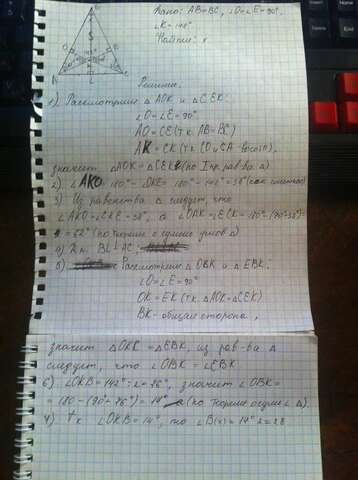 Дано: AB=BC, ∠O=∠E=90°.
∠K=142°
Найти: x
Решение.
1) Рассмотрим △ AOK и △ CEK:
∠O=∠E=90°
AO=CE (т.к. AB=BC)
AK=CK (т.к. CO и EA
значит △AOK=△CEK (по I пр. рав-ва △)
2) ∠AKO=180°-∠OKE=180°-142°=38° (как смежные)
3) Из равенства △ следует, что
∠AKO=∠CKE=38°, а ∠OAK=∠ECK=180°-(90°+38°)=
=52° (по теореме о сумме углов △)
4) BL⊥AC;
5) Рассмотрим △OBK и △EBK:
∠O=∠E=90°
OK=EK (т.к. △AOK=△CEK)
BK-общая сторона,
значит △OKB=△EBK, из рав-ва △
следует, что ∠OBK=∠EBK
6) ∠OKB=142°:2=76°, значит ∠OBK=
=180-(90°+76°)=14° (по теореме о сумме ∠ △)
7) Тк ∠OKB=14°, то ∠B(x)=14°·2=28